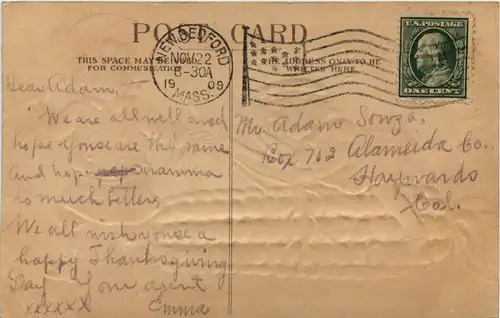 POST CARD
THIS SPACE MAY BE USED
FOR COMMUNICATION
THE ADDRESS ONLY TO BE
WRITTEN HERE
NEW BEDFORD
NOV 22
6-30A
1909
MASS.
U.S. POSTAGE
ONE CENT
Dear Adam,
We are all well and
hope youse are the same
and hope mamma
is much better,
We all wish youse a
happy Thanksgiving
Day Your
xxxxxx Emma
Mr. Adam Souza,
Box 702 Alameda Co.
Haywards
Cal.